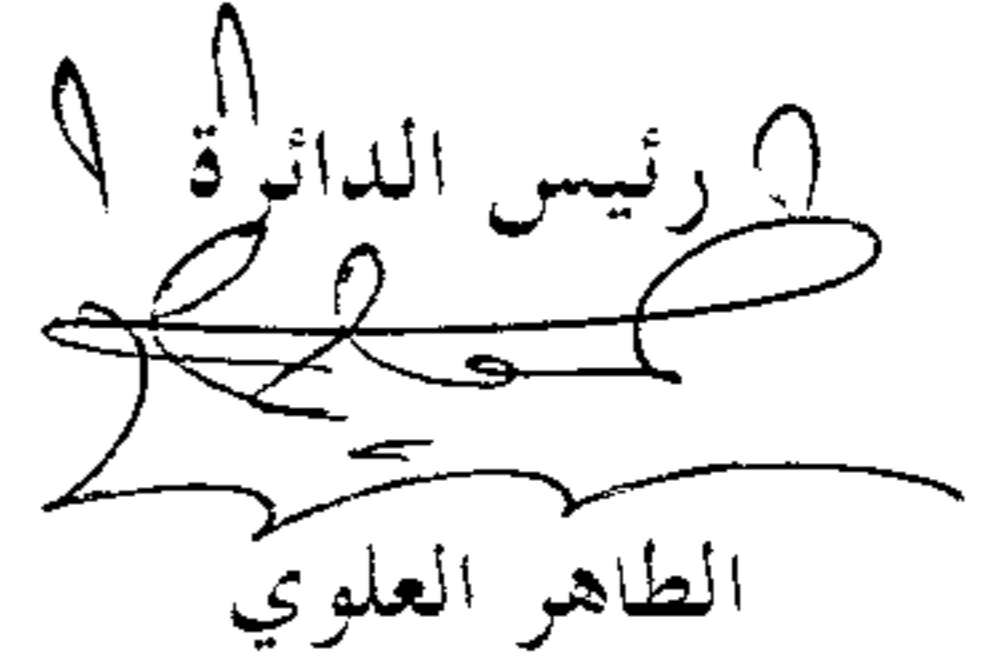 رئيس الدائرة
الطاهر العلوي